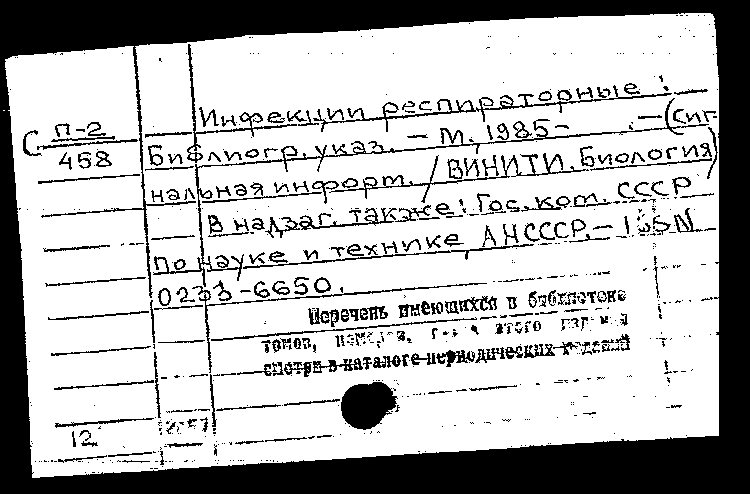 Инфекции респираторные:
С П-2
458
Библиогр. указ. – М., 1985- . – (Сиг-
нальная информ. / ВИНИТИ. Биология)
В надзаг. также: Гос. ком. СССР
по науке и технике, АН СССР. – ISSN
0233-6650.
Перечень имеющихся в библиотеке
томов, номеров, этого
смотри в каталоге периодических изданий
12